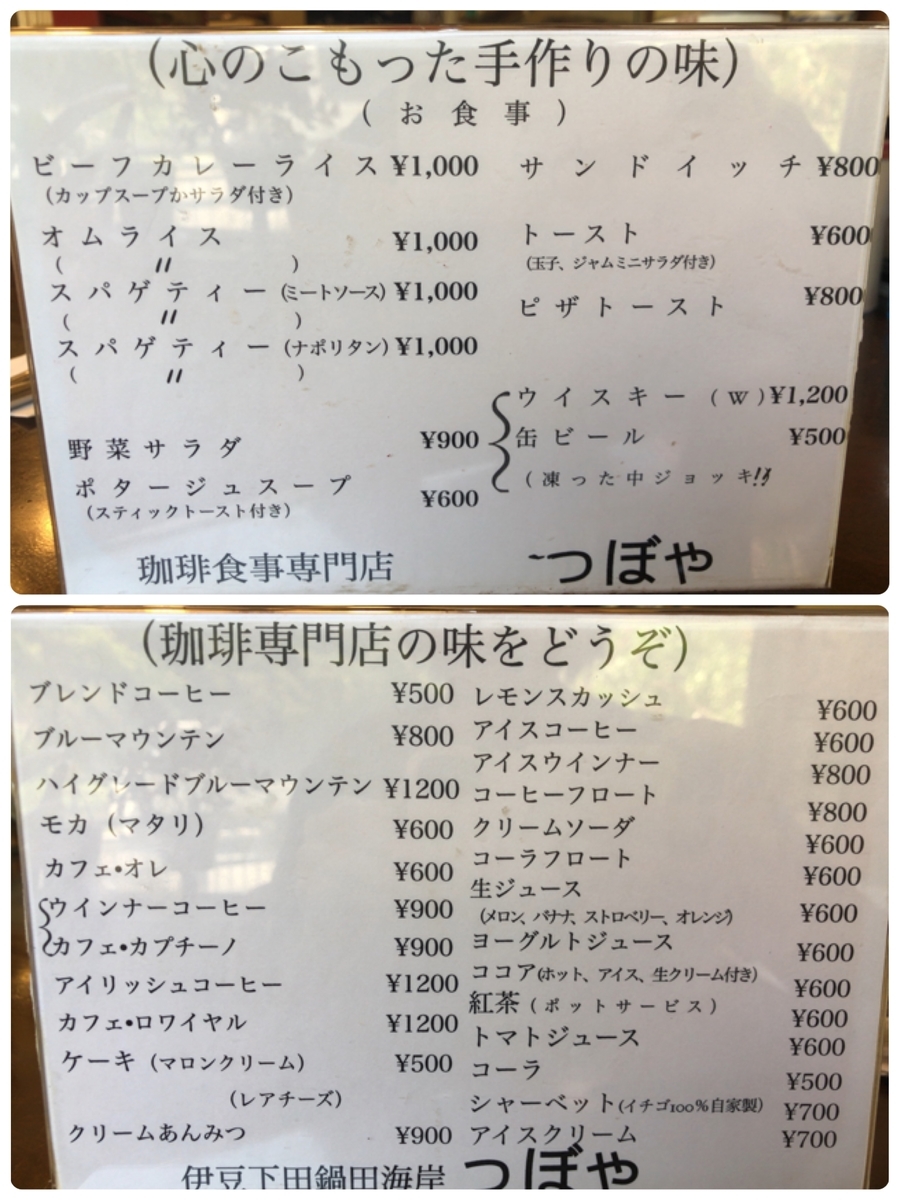 (心のこもった手作りの味)
(お食事)
ビーフカレーライス ¥1,000
(カップスープかサラダ付き)
オムライス ¥1,000
( 〃 )
スパゲティー(ミートソース) ¥1,000
( 〃 )
スパゲティー(ナポリタン) ¥1,000
( 〃 )
野菜サラダ ¥900
ポタージュスープ ¥600
(スティックトースト付き)
サンドイッチ ¥800
トースト ¥600
(玉子、ジャムミニサラダ付き)
ピザトースト ¥800
ウイスキー(W) ¥1,200
缶ビール ¥500
(凍った中ジョッキ!!)
珈琲食事専門店 つぼや
(珈琲専門店の味をどうぞ)
ブレンドコーヒー ¥500
ブルーマウンテン ¥800
ハイグレードブルーマウンテン ¥1200
モカ(マタリ) ¥600
カフェ•オレ ¥600
ウインナーコーヒー ¥900
カフェ•カプチーノ ¥900
アイリッシュコーヒー ¥1200
カフェ•ロワイヤル ¥1200
ケーキ(マロンクリーム) ¥500
(レアチーズ)
クリームあんみつ ¥900
レモンスカッシュ ¥600
アイスコーヒー ¥600
アイスウインナー ¥800
コーヒーフロート ¥800
クリームソーダ ¥600
コーラフロート ¥600
生ジュース ¥600
(メロン、バナナ、ストロベリー、オレンジ)
ヨーグルトジュース ¥600
ココア(ホット、アイス、生クリーム付き) ¥600
紅茶(ポットサービス) ¥600
トマトジュース ¥600
コーラ ¥500
シャーベット(イチゴ100%自家製) ¥700
アイスクリーム ¥700
伊豆下田鍋田海岸 つぼや